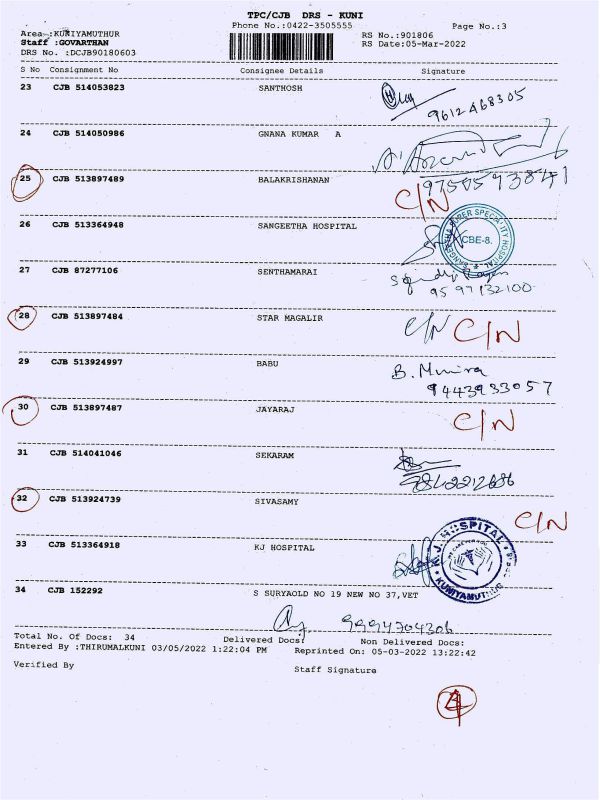 TPC/CJB DRS - KUNI
Phone No.:0422-3505555
Page No.:3
Area :KUNIYAMUTHUR
Staff :GOVARTHAN
DRS No. :DCJB90180603
RS No.:901806
RS Date:05-Mar-2022
S No Consignment No Consignee Details Signature
23 CJB 514053823 SANTHOSH
9612468305
24 CJB 514050986 GNANA KUMAR A
9750593841
25 CJB 513897489 BALAKRISHANAN
C/N
26 CJB 513364948 SANGEETHA HOSPITAL
SUPER SPECIALITY HOSPITAL
CBE-8.
27 CJB 87277106 SENTHAMARAI
9597132100
28 CJB 513897484 STAR MAGALIR
C/N C/N
29 CJB 513924997 BABU
B. Munira
9443933057
30 CJB 513897487 JAYARAJ
C/N
31 CJB 514041046 SEKARAM
32 CJB 513924739 SIVASAMY
C/N
33 CJB 513364918 KJ HOSPITAL
K.J. HOSPITAL
KUNIYAMUTHUR
34 CJB 152292 S SURYAOLD NO 19 NEW NO 37,VET
9994704306
Total No. Of Docs: 34 Delivered Docs: Non Delivered Docs:
Entered By :THIRUMALKUNI 03/05/2022 1:22:04 PM Reprinted On: 05-03-2022 13:22:42
Verified By Staff Signature
4